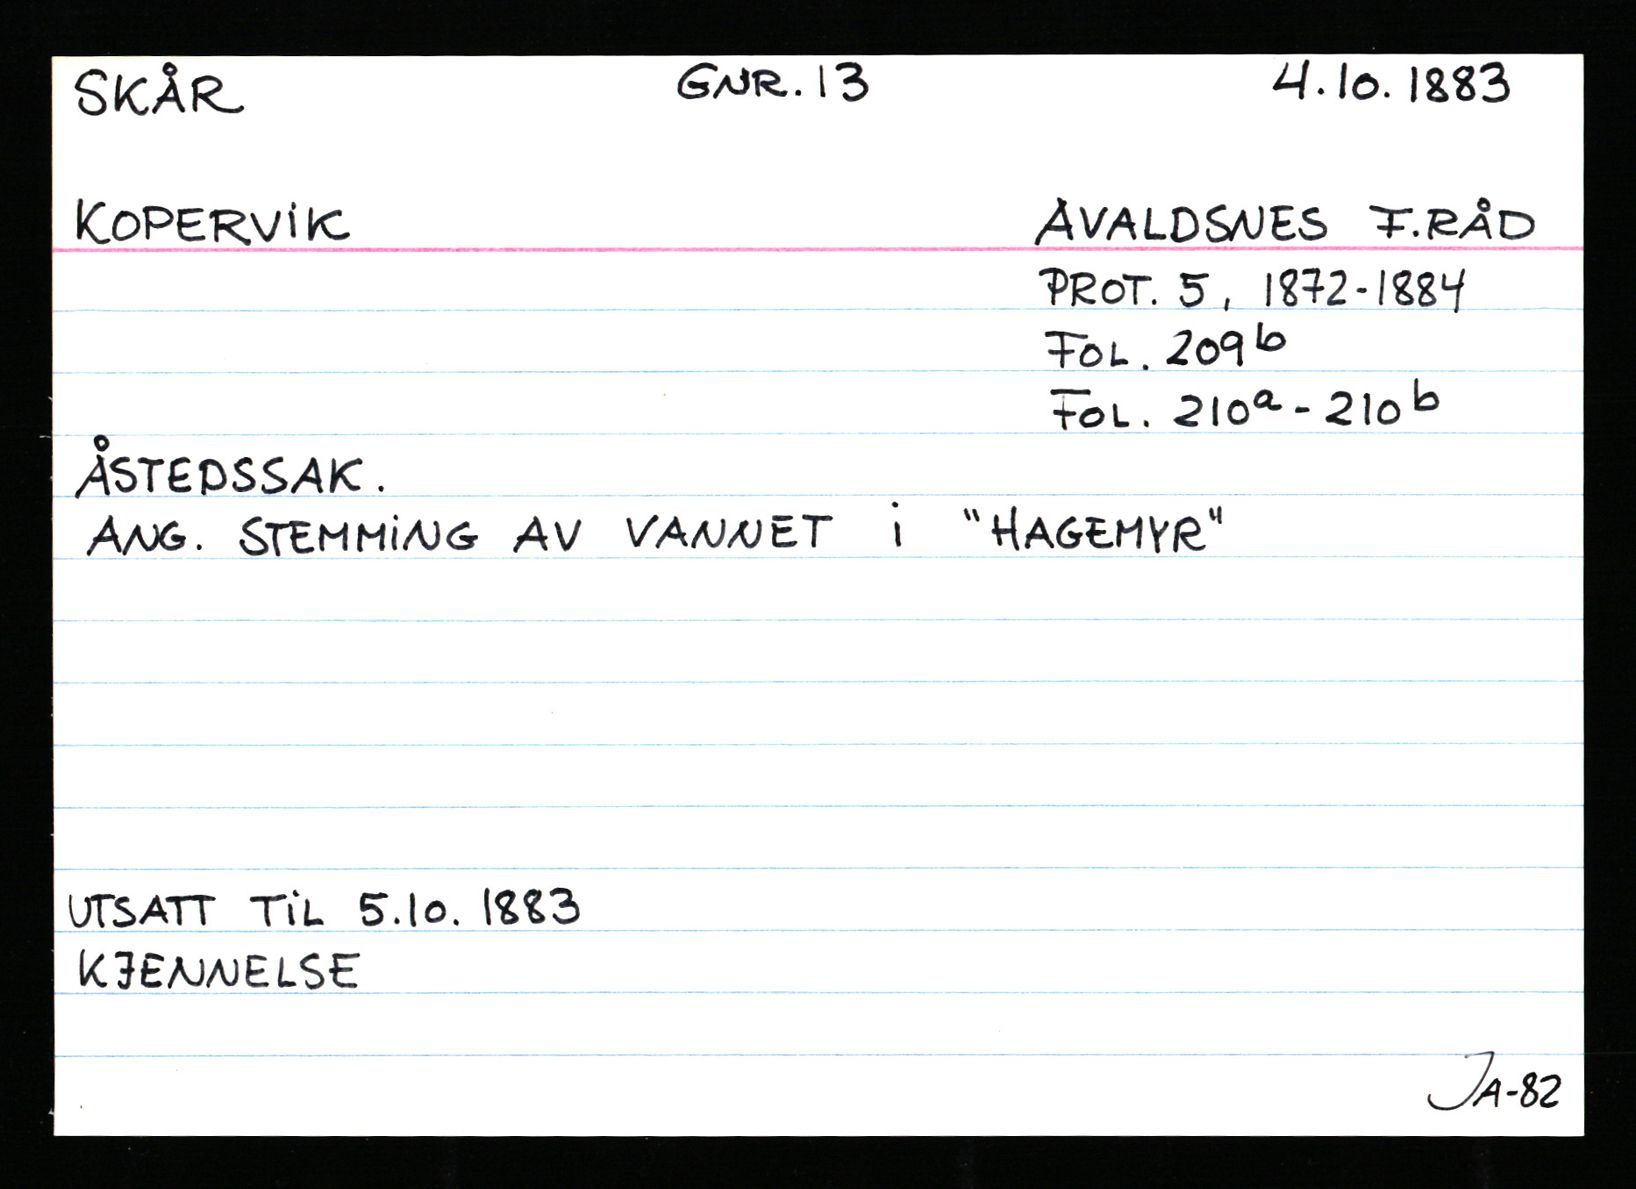 SKÅR GNR. 13 4.10.1883
KOPERVIK AVALDSNES F.RÅD
PROT. 5, 1872-1884
FOL. 209b
FOL. 210a - 210b
ÅSTEDSSAK.
ANG. STEMMING AV VANNET i "HAGEMYR"
UTSATT TIL 5.10.1883
KJENNELSE
JA-82